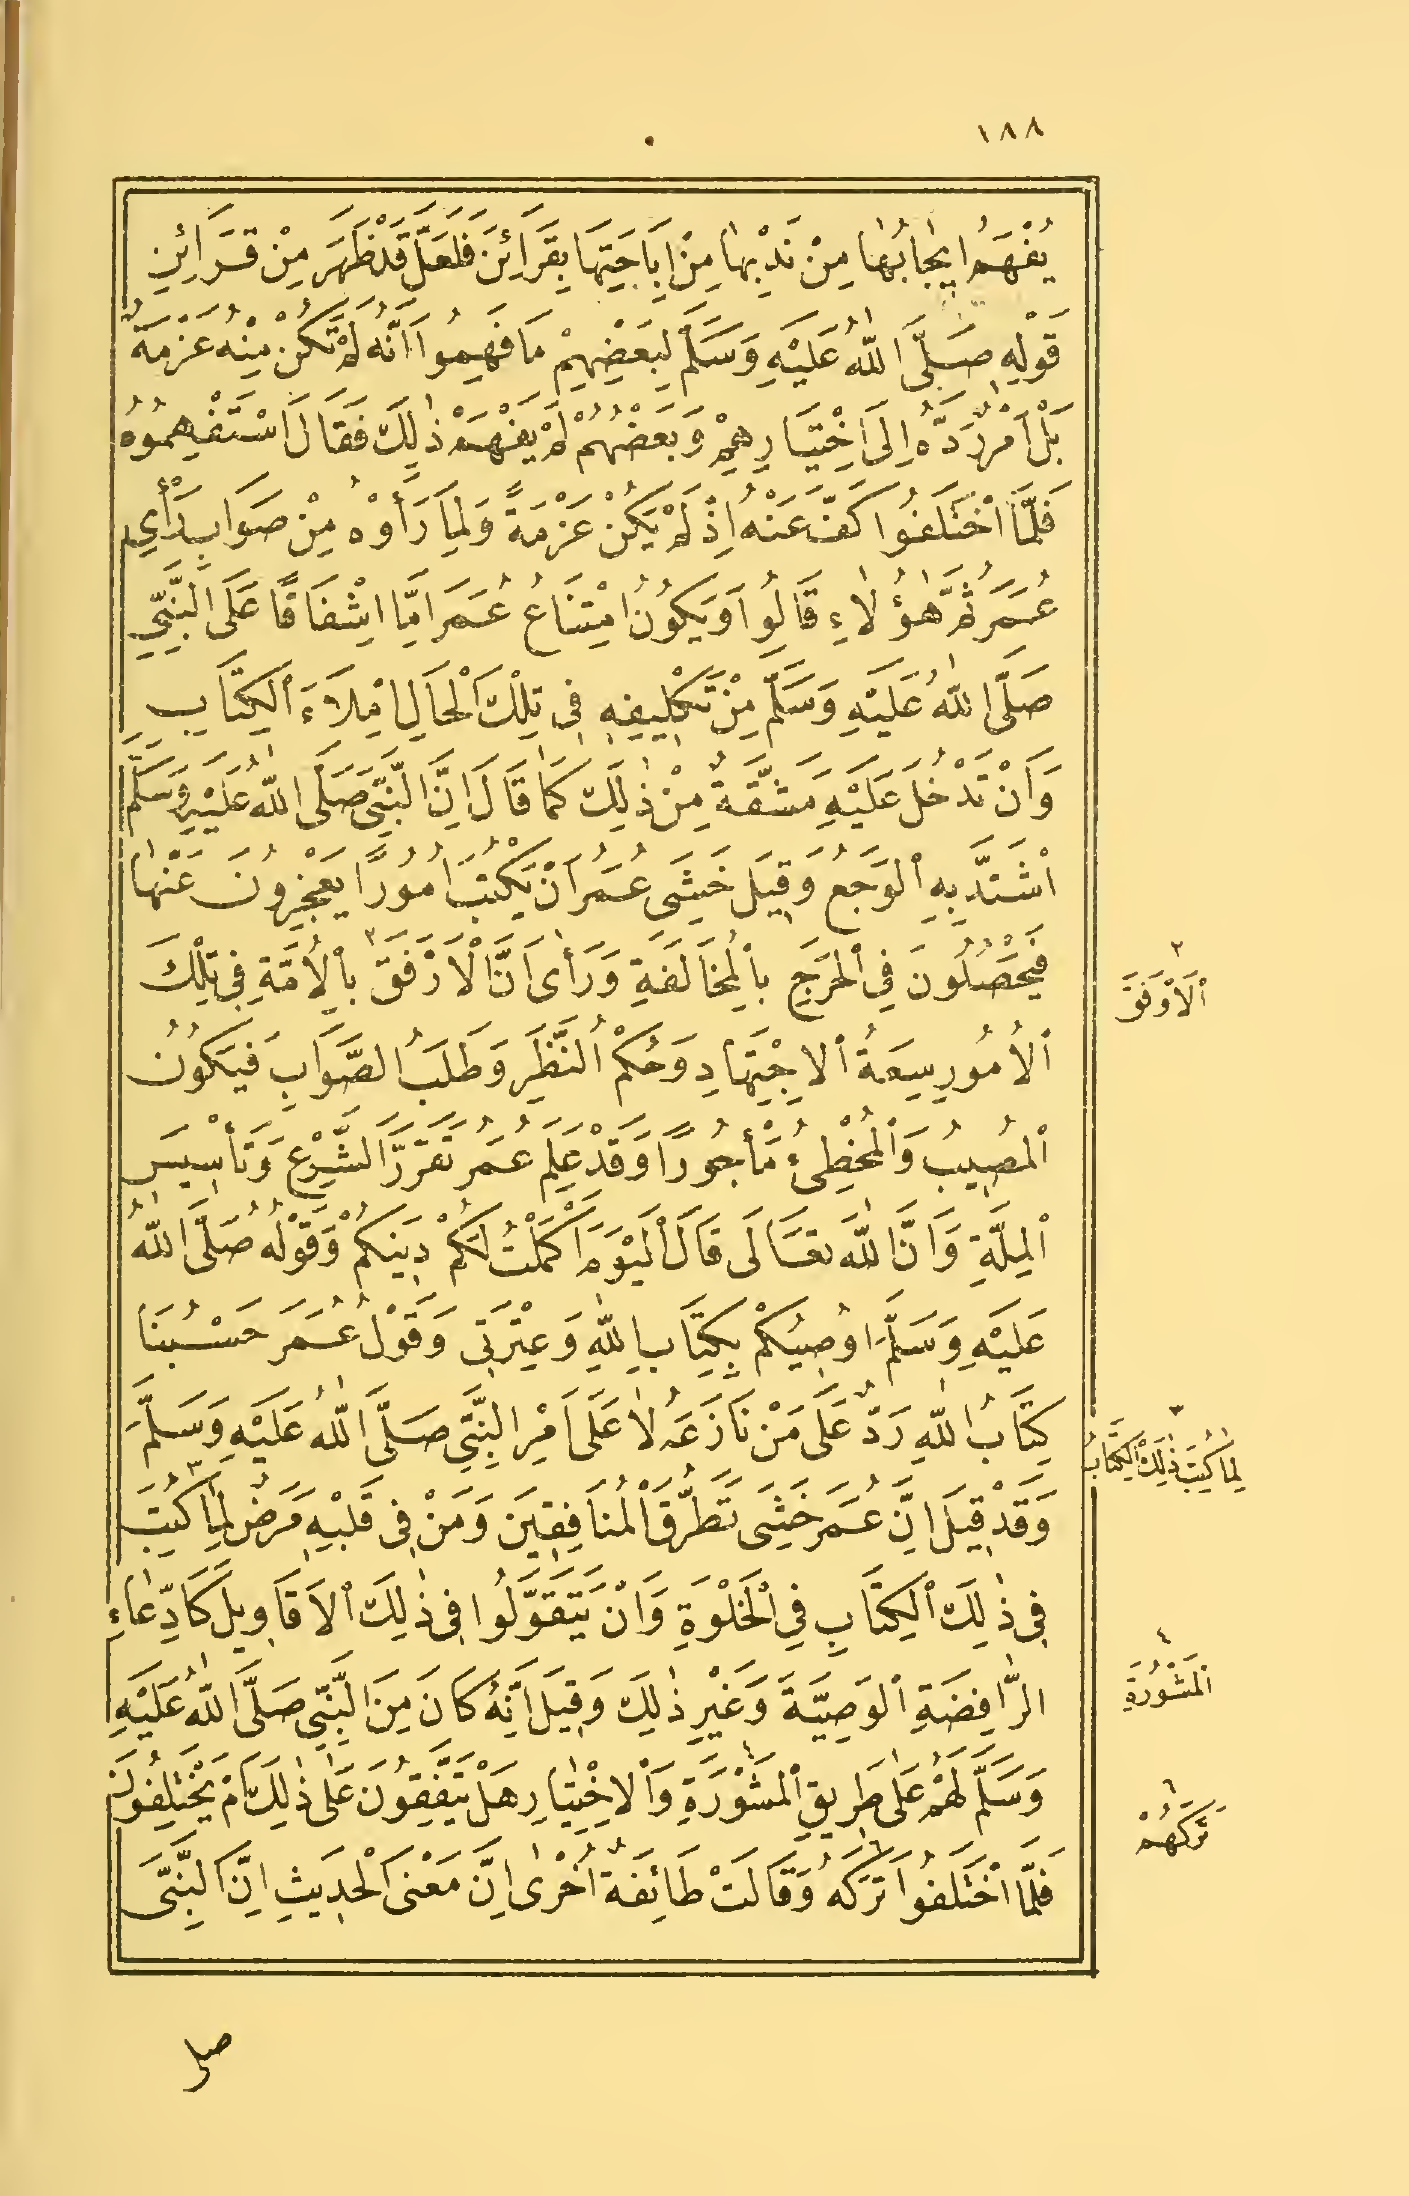 ١٨٨
يُفْهَمُ اِيجَابُهَا مِنْ نَدْبِهَا مِنْ اِبَاحَتِهَا بِقَرَائِنَ فَلَعَلَّ قَدْ ظَهَرَ مِنْ قَرَائِنِ
قَوْلِهِ صَلَّى اللّٰهُ عَلَيْهِ وَسَلَّمَ لِبَعْضِهِمْ مَا فَهِمُوا اَنَّهُ لَمْ تَكُنْ مِنْهُ عَزْمَةٌ
بَلْ اَمْرٌ رَدَّهُ اِلَى اخْتِيَارِهِمْ وَبَعْضُهُمْ لَمْ يَفْهَمْ ذٰلِكَ فَقَالَ اسْتَفْهِمُوهُ
فَلَمَّا اخْتَلَفُوا كَفَّ عَنْهُ اِذْ لَمْ يَكُنْ عَزْمَةً وَلِمَا رَأَوْهُ مِنْ صَوَابِ رَأْيِ
عُمَرَ ثُمَّ هٰؤُلَاءِ قَالُوا وَيَكُونُ امْتِنَاعُ عُمَرَ اِمَّا اِشْفَاقًا عَلَى النَّبِيِّ
صَلَّى اللّٰهُ عَلَيْهِ وَسَلَّمَ مِنْ تَكْلِيفِهِ فِي تِلْكَ الْحَالِ اِمْلَاءَ الْكِتَابِ
وَاَنْ تَدْخُلَ عَلَيْهِ مَشَقَّةٌ مِنْ ذٰلِكَ كَمَا قَالَ اِنَّ النَّبِيَّ صَلَّى اللّٰهُ عَلَيْهِ وَسَلَّمَ
اشْتَدَّ بِهِ الْوَجَعُ وَقِيلَ خَشِيَ عُمَرُ اَنْ يَكْتُبَ اُمُورًا يَعْجِزُونَ عَنْهَا
فَيَحْصُلُونَ فِي الْحَرَجِ بِالْمُخَالَفَةِ وَرَأٰى اَنَّ الْاَرْفَقَ ٢ بِالْاُمَّةِ فِي تِلْكَ
الْاُمُورِ سِعَةُ الْاِجْتِهَادِ وَحُكْمُ النَّظَرِ وَطَلَبُ الصَّوَابِ فَيَكُونُ
الْمُصِيبُ وَالْمُخْطِئُ مَأْجُورًا وَقَدْ عَلِمَ عُمَرُ تَقَرُّرَ الشَّرْعِ وَتَأْسِيسَ
الْمِلَّةِ وَاَنَّ اللّٰهَ تَعَالَى قَالَ اَلْيَوْمَ اَكْمَلْتُ لَكُمْ دِينَكُمْ وَقَوْلُهُ صَلَّى اللّٰهُ
عَلَيْهِ وَسَلَّمَ اُوصِيكُمْ بِكِتَابِ اللّٰهِ وَعِتْرَتِي وَقَوْلُ عُمَرَ حَسْبُنَا
كِتَابُ اللّٰهِ رَدٌّ عَلَى مَنْ نَازَعَهُ لَا عَلَى اَمْرِ النَّبِيِّ صَلَّى اللّٰهُ عَلَيْهِ وَسَلَّمَ
وَقَدْ قِيلَ اِنَّ عُمَرَ خَشِيَ تَطَرُّقَ الْمُنَافِقِينَ وَمَنْ فِي قَلْبِهِ مَرَضٌ لِمَا ٣ كُتِبَ
فِي ذٰلِكَ الْكِتَابِ فِي الْخَلْوَةِ وَاَنْ يَتَقَوَّلُوا فِي ذٰلِكَ الْاَقَاوِيلَ كَادِّعَاءِ
الرَّافِضَةِ الْوَصِيَّةَ وَغَيْرِ ذٰلِكَ وَقِيلَ اِنَّهُ كَانَ مِنَ النَّبِيِّ صَلَّى اللّٰهُ عَلَيْهِ
وَسَلَّمَ لَهُمْ عَلَى طَرِيقِ الْمَشْوَرَةِ ٤ وَالْاِخْتِيَارِ هَلْ يَتَّفِقُونَ عَلَى ذٰلِكَ اَمْ يَخْتَلِفُونَ
فَلَمَّا اخْتَلَفُوا تَرَكَهُ ٦ وَقَالَتْ طَائِفَةٌ اُخْرٰى اِنَّ مَعْنَى الْحَدِيثِ اِنَّ النَّبِيَّ
٢
اَلْاَوْفَقَ
٣
لِمَا كُتِبَ ذٰلِكَ الْكِتَابُ
٤
الْمَشُورَةِ
٦
تَرَكَهُمْ
صلى